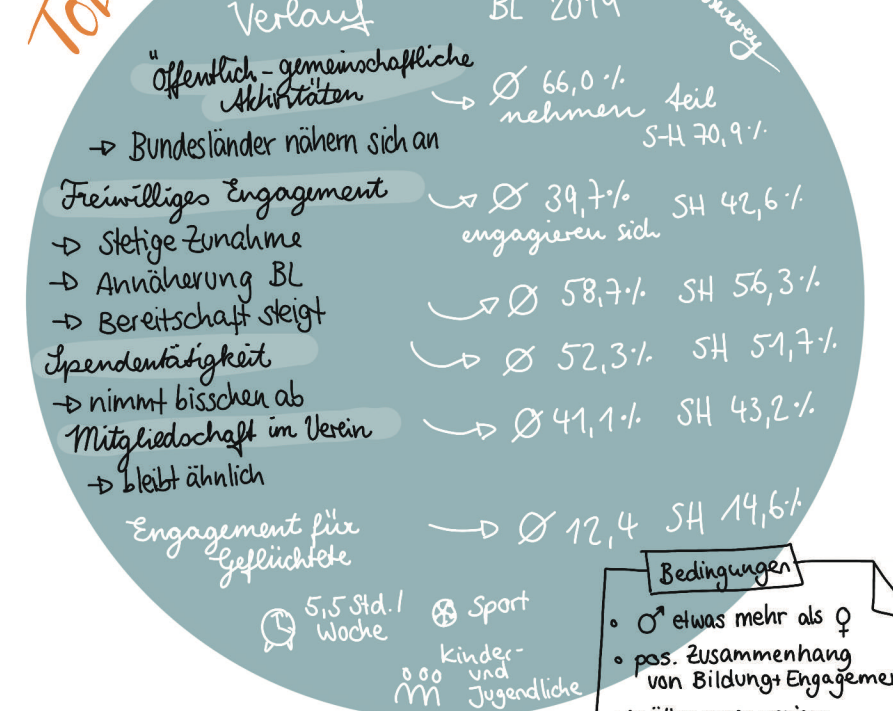 Verlauf
BL 2019
survey
Öffentlich-gemeinschaftliche
Aktivitäten
Ø 66,0 %
nehmen teil
S-H 70,9 %
→ Bundesländer nähern sich an
Freiwilliges Engagement
→ Ø 39,7 % SH 42,6 %
engagieren sich
→ Stetige Zunahme
→ Annäherung BL
→ Bereitschaft steigt
→ Ø 58,7 % SH 56,3 %
Spendentätigkeit
→ Ø 52,3 % SH 51,7 %
→ nimmt bisschen ab
Mitgliedschaft im Verein
→ Ø 41,1 % SH 43,2 %
→ bleibt ähnlich
Engagement für
Geflüchtete
→ Ø 12,4 SH 14,6 %
5,5 Std. /
Woche
Sport
Kinder-
und
Jugendliche
Bedingungen
• ♂ etwas mehr als ♀
• pos. Zusammenhang
von Bildung + Engageme